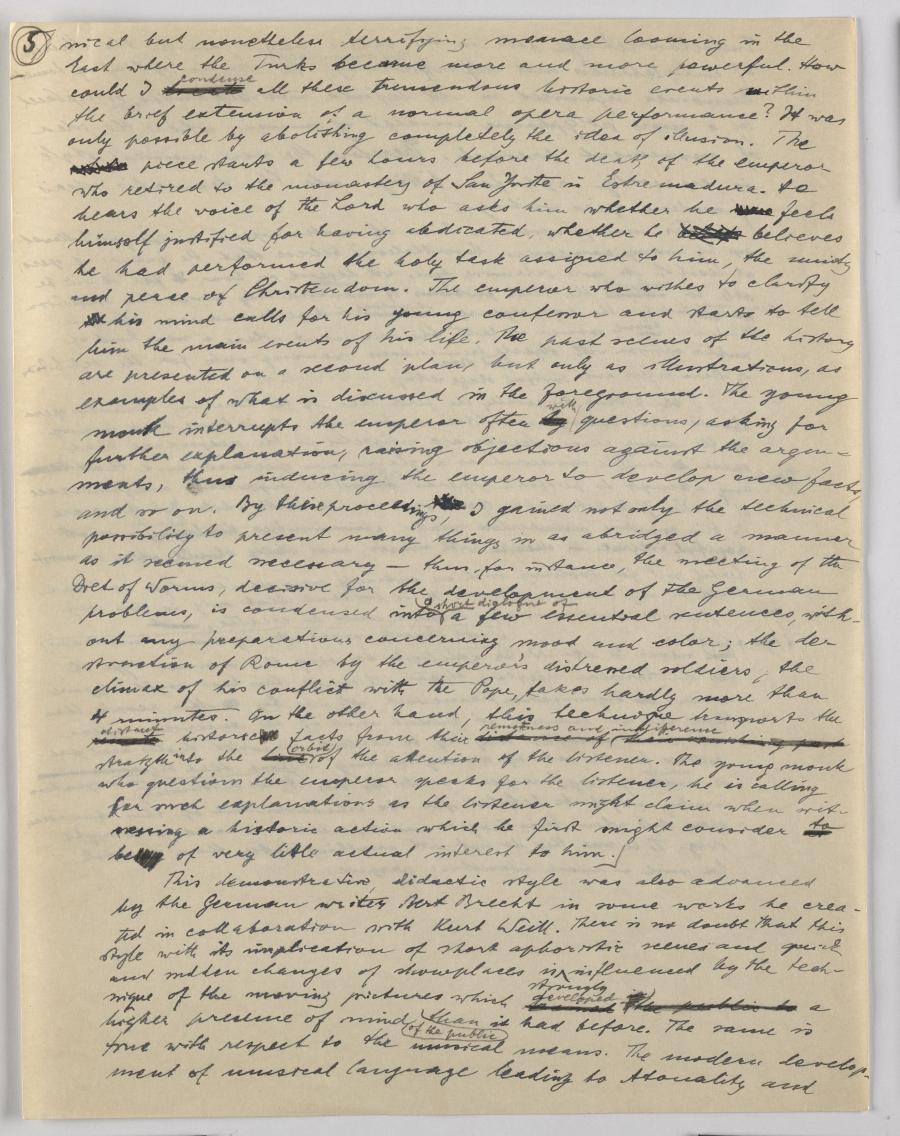 5 nical but nonetheless terrifying menace looming in the
East where the Turks became more and more powerful. How
could I condense all these tremendous historic events within
the brief extension of a normal opera performance? It was
only possible by abolishing completely the idea of illusion. The
piece starts a few hours before the death of the emperor
who retired to the monastery of San Yuste in Estremadura. He
hears the voice of the Lord who asks him whether he feels
himself justified for having abdicated, whether he believes
he had performed the holy task assigned to him, the unity
and peace of Christendom. The emperor who wishes to clarify
his mind calls for his young confessor and starts to tell
him the main events of his life. The past scenes of the history
are presented on a second plan, but only as illustrations, as
examples of what is discussed in the foreground. The young
monk interrupts the emperor often with questions, asking for
further explanation, raising objections against the argu-
ments, thus inducing the emperor to develop new facts,
and so on. By these proceedings, I gained not only the technical
possibility to present many things in as abridged a manner
as it seemed necessary – thus, for instance, the meeting of the
Diet of Worms, decisive for the development of the German
problems, is condensed into a short dialogue of a few essential sentences, with-
out any preparations concerning mood and color; the des-
truction of Rome by the emperor's distressed soldiers, the
climax of his conflict with the Pope, takes hardly more than
4 minutes. On the other hand, this technique transports the
distant historical facts from their remoteness and indifference
straight into the orbit of the attention of the listener. The young monk
who questions the emperor speaks for the listener, he is calling
for such explanations as the listener might claim when wit-
nessing a historic action which he first might consider
being of very little actual interest to him.
This demonstrative, didactic style was also advanced
by the German writer Bert Brecht in some works he crea-
ted in collaboration with Kurt Weill. There is no doubt that this
style with its implication of short aphoristic scenes and quick
and sudden changes of showplaces is strongly influenced by the tech-
nique of the moving pictures which developed a
higher presence of mind of the public than it had before. The same is
true with respect to the musical means. The modern develop-
ment of musical language leading to Atonality and